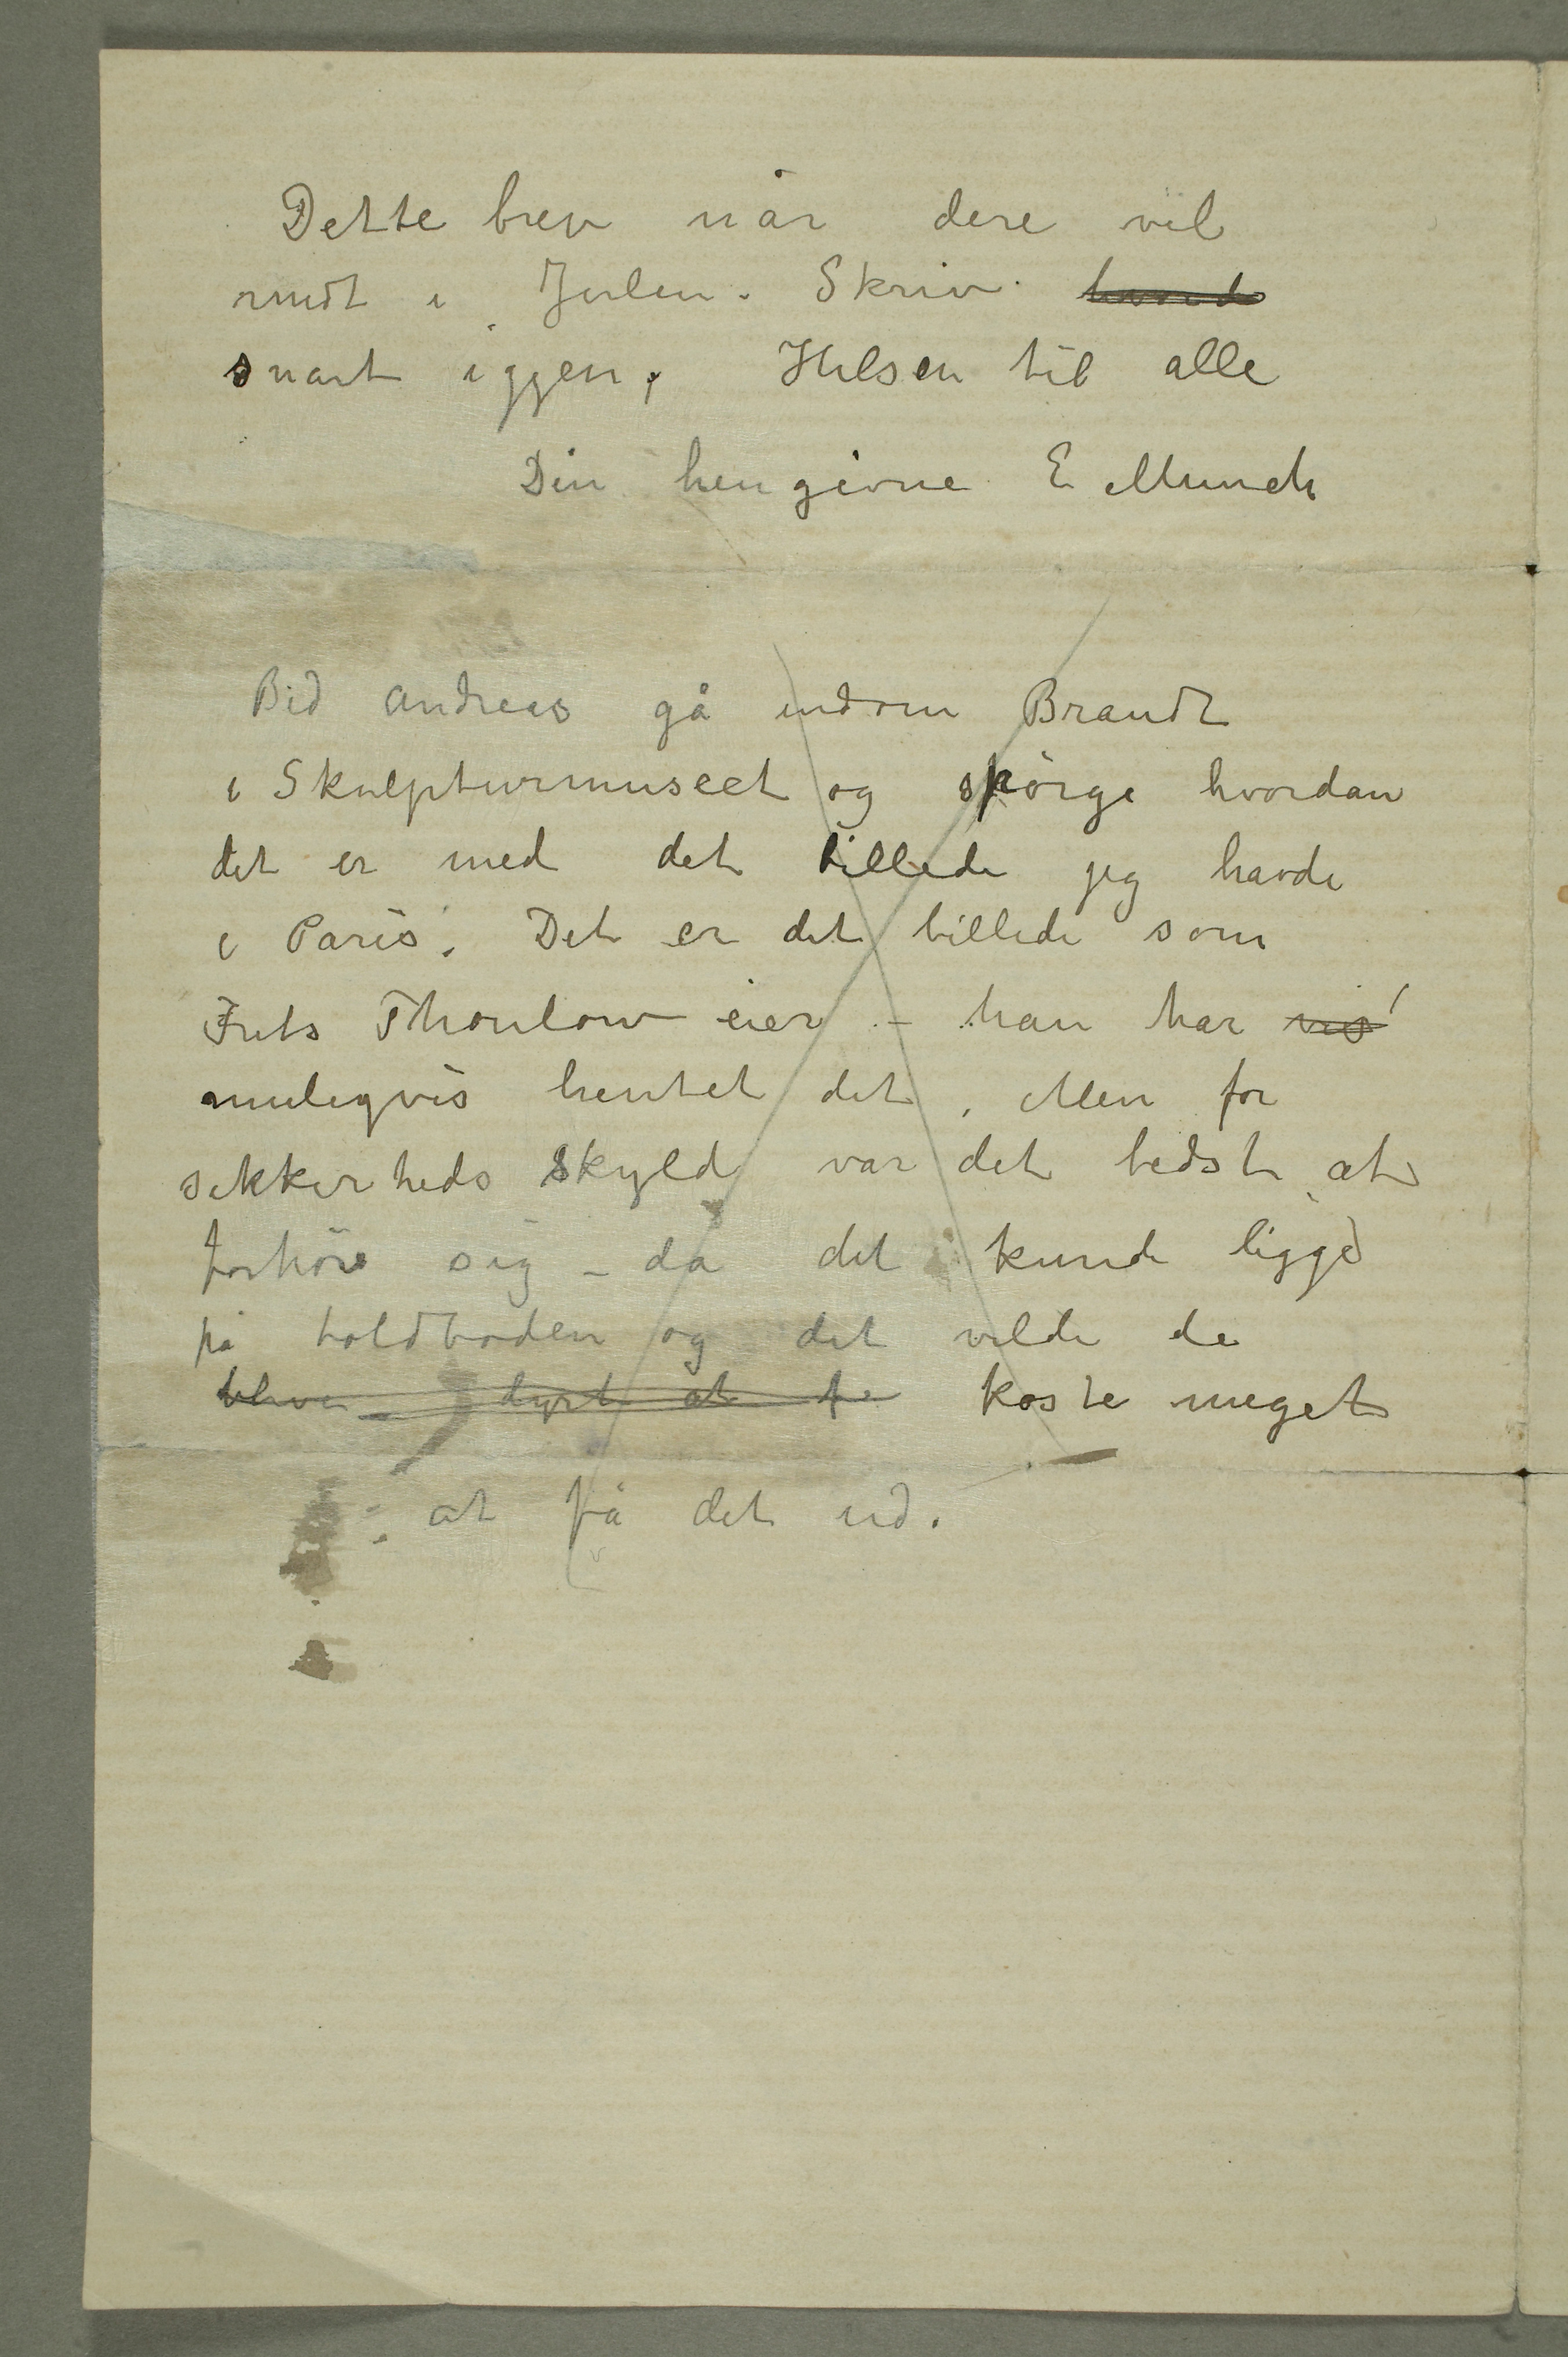 Dette brev når dere vel
midt i Julen. Skriv hvord
snart iggjen, Hilsen til alle
Din hengivne E Munch
Bid Andreas gå indom Brandt
i Skulpturmuseet og spörge hvordan
det er med det billede jeg havde
i Paris. Det er det billede som
Frits Thoulow eier – han har vis
muligvis hentet det. Men for
sikkerheds skyld var det bedst at
forhöre sig – da det kunde ligge
på toldboden og det vilde da
blive dyrt at få koste meget
at få det ud.